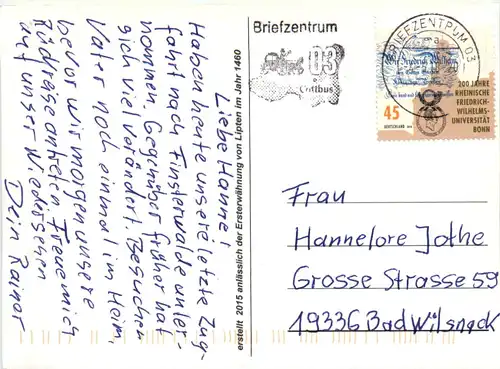 Liebe Hanne!
Haben heute unsere letzte Zug-
fahrt nach Finsterwalde unter-
nommen. Gegenüber früher hat
sich viel verändert. Besuchen
Vater noch einmal im Heim,
bevor wir morgen unsere
Rückreise antreten. Freue mich
auf unser Wiedersehen
Dein Rainer
erstellt 2015 anlässlich der Ersterwähnung von Lipten im Jahr 1460
Briefzentrum
03
Cottbus
BRIEFZENTRUM 03
Wir Friedrich Wilhelm,
45
DEUTSCHLAND
200 JAHRE
RHEINISCHE
FRIEDRICH-
WILHELMS-
UNIVERSITÄT
BONN
Frau
Hannelore Jothe
Grosse Strasse 59
19336 Bad Wilsnack